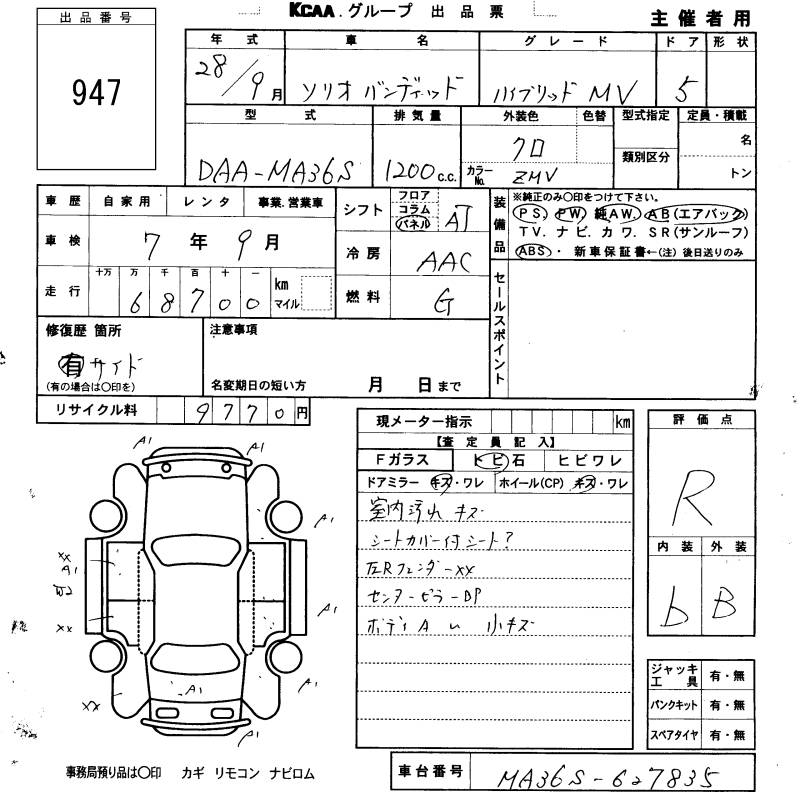 KCAA.グループ 出品票
主催者用
出品番号
947
年式 車名 グレード ドア 形状
28/9月 ソリオ バンディット ハイブリッド MV 5
型式 排気量 外装色 色替 型式指定 定員・積載
DAA-MA36S 1200c.c. クロ 類別区分 名
カラーNo. ZMV トン
車歴 自家用 レンタ 事業.営業車
車検 7年9月
走行 十万 万 千 百 十 一
68700 km マイル
シフト フロア コラム パネル AT
冷房 AAC
燃料 G
装備品 ※純正のみ〇印をつけて下さい。
PS) PW) 純AW. AB(エアバック)
TV. ナビ. カワ. SR(サンルーフ)
ABS・ 新車保証書←(注) 後日送りのみ
セールスポイント
修復歴 箇所
有 サイド
(有の場合は〇印を)
注意事項
名変期日の短い方 月 日まで
リサイクル料 9770円
現メーター指示 km
【査定員記入】
Fガラス トビ石 ヒビワレ
ドアミラー キズ・ワレ ホイール(CP) キズ・ワレ
室内汚れ キズ
シートカバー付シート?
左Rフェンダーxx
センターピラーBP
ボディ A 小キズ
評価点
R
内装 外装
b B
ジャッキ工具 有・無
パンクキット 有・無
スペアタイヤ 有・無
A1 A1
A1
xx
A1
xx
A1
xx
A1
A1
A1
事務局預り品は〇印 カギ リモコン ナビロム
車台番号 MA36S-627835